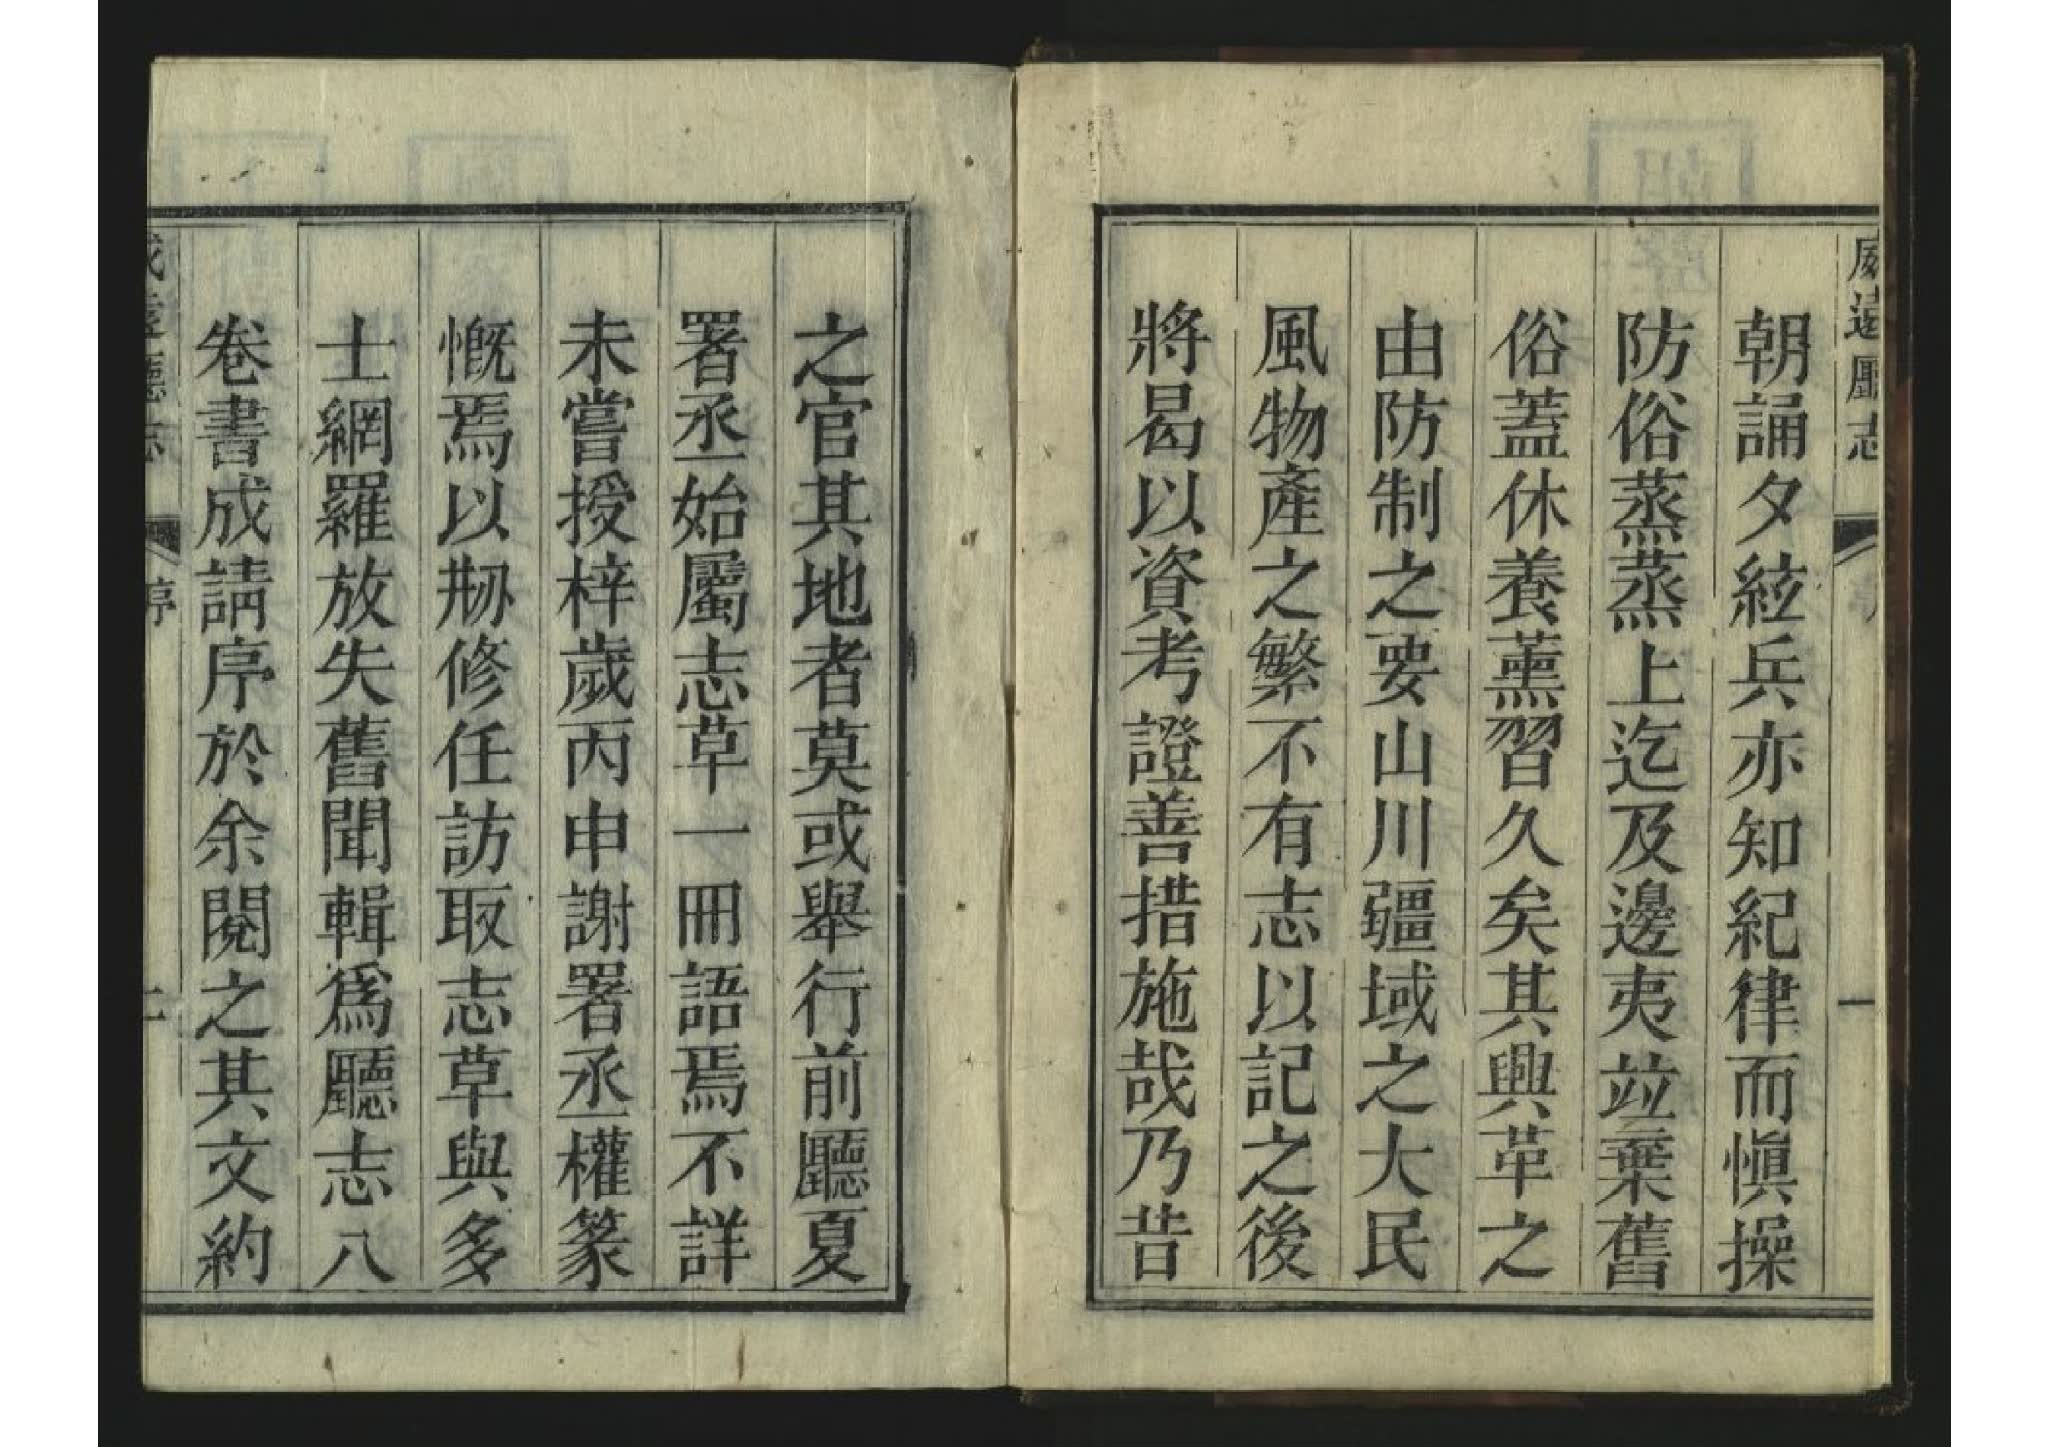 威遠廳志
序
一
朝誦夕絃兵亦知紀律而愼操
防俗蒸蒸上迄及邊夷竝棄舊
俗蓋休養薰習久矣其興革之
由防制之要山川疆域之大民
風物產之繁不有志以記之後
將曷以資考證善措施哉乃昔
之官其地者莫或舉行前廳夏
署丞始屬志草一冊語焉不詳
未嘗授梓歲丙申謝署丞權篆
慨焉以刱修任訪取志草與多
士網羅放失舊聞輯爲廳志八
卷書成請序於余閱之其文約
威遠廳志
序
二